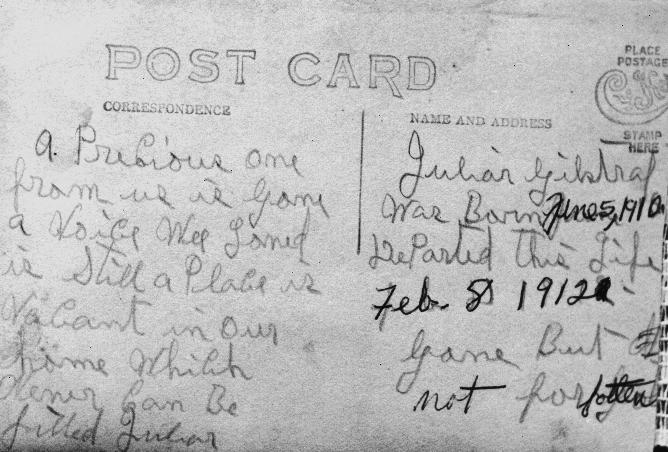 POST CARD
PLACE
POSTAGE
STAMP
HERE
CORRESPONDENCE
NAME AND ADDRESS
a. Precious one
from us is gone
a Voice Wee Loved
is Still a Place is
Vacant in our
home Which
Never Can Be
filled Juliar
Juliar Gilstrap
Was Born June 5, 1910
DeParted This Life
Feb. 8 1912
gone But
not forgotten